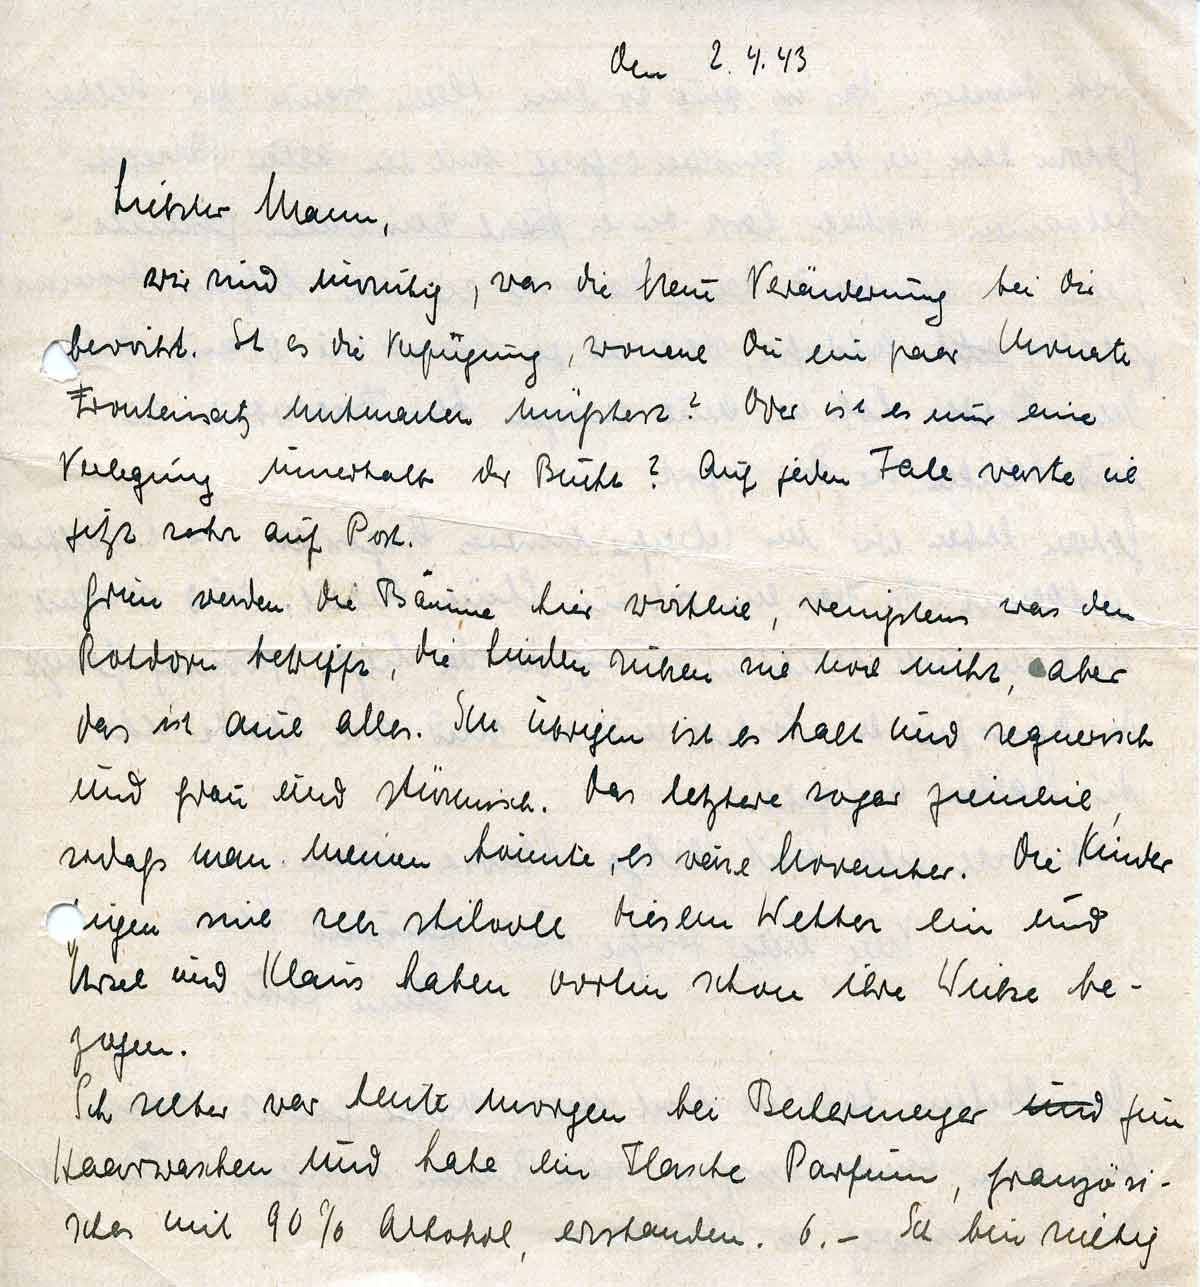 den 2.4.43
Liebster Mann,
wir sind unruhig, was die neue Veränderung bei dir
bewirkt. Ist es die Verfügung, wonach du ein paar Monate
Fronteinsatz mitmachen müßtest? Oder ist es nur eine
Verlegung innerhalb der Bucht? Auf jeden Fall warte ich
jetzt sehr auf Post.
Grün werden die Bäume hier wirklich, wenigstens was den
Rotdorn betrifft, die Linden rühren sich noch nicht, aber
das ist auch alles. Im übrigen ist es kalt und regnerisch
und grau und stürmisch. Das letztere sogar ziemlich,
sodaß man meinen könnte, es wäre November. Die Kinder
fügen sich sehr stilvoll diesem Wetter ein und
Ursel und Klaus haben vorhin schon ihre Wichse be-
zogen.
Ich selber war heute morgen bei Beckermeyer und zum
Haarwaschen und habe ein Flasche Parfum, französi-
sches mit 90% Alkohol, erstanden. 6.- Ich bin richtig